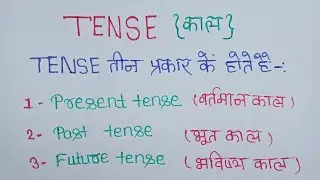 TENSE {काल}
TENSE तीन प्रकार कें होते है -:
1 - Present tense (वर्तमान काल)
2 - Past tense (भूत काल)
3 - Future tense (भविष्य काल)